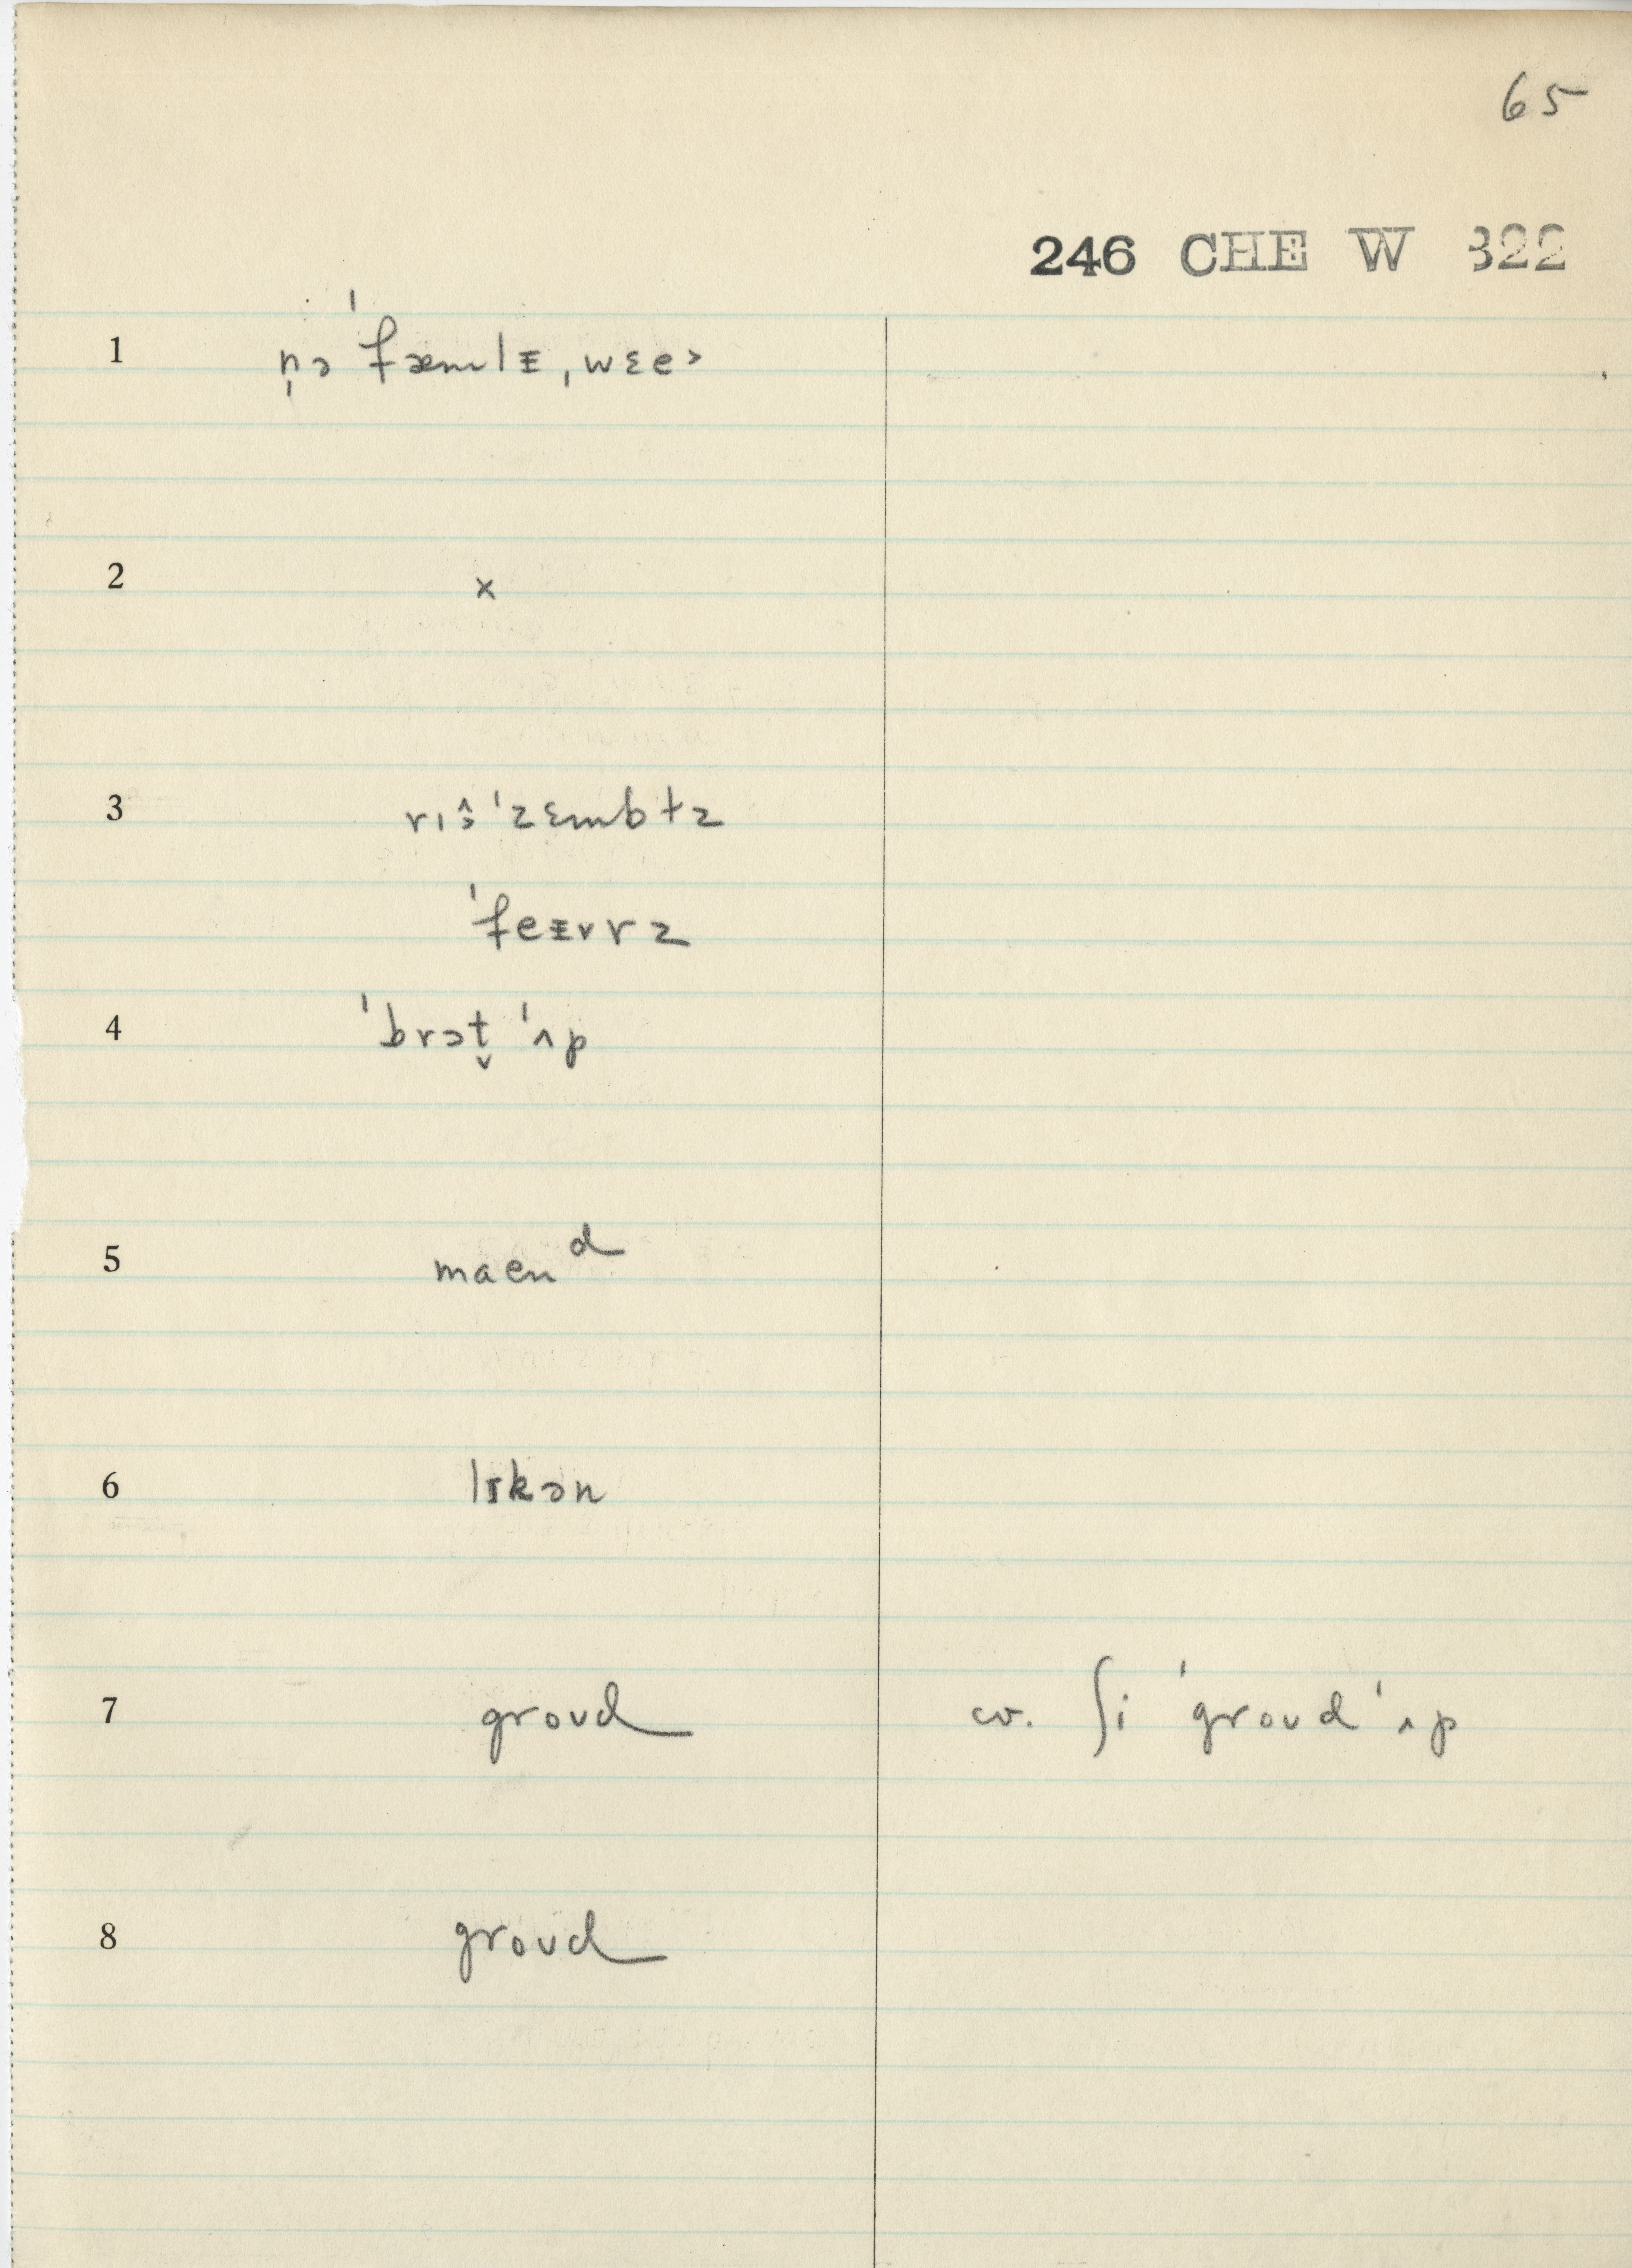 65
246 CHE W 322
1 n̩ə ˈfæmlɪ̵, wɛe˃
2 x
3 rɪə̂ ˈzɛmbɫz
ˈfeɪ̵vrz
4 ˈbrɔt̬ ˈʌp
5 maenᵈ
6 lɪkən
7 groud cv. ʃi ˈgroud ˈʌp
8 groud